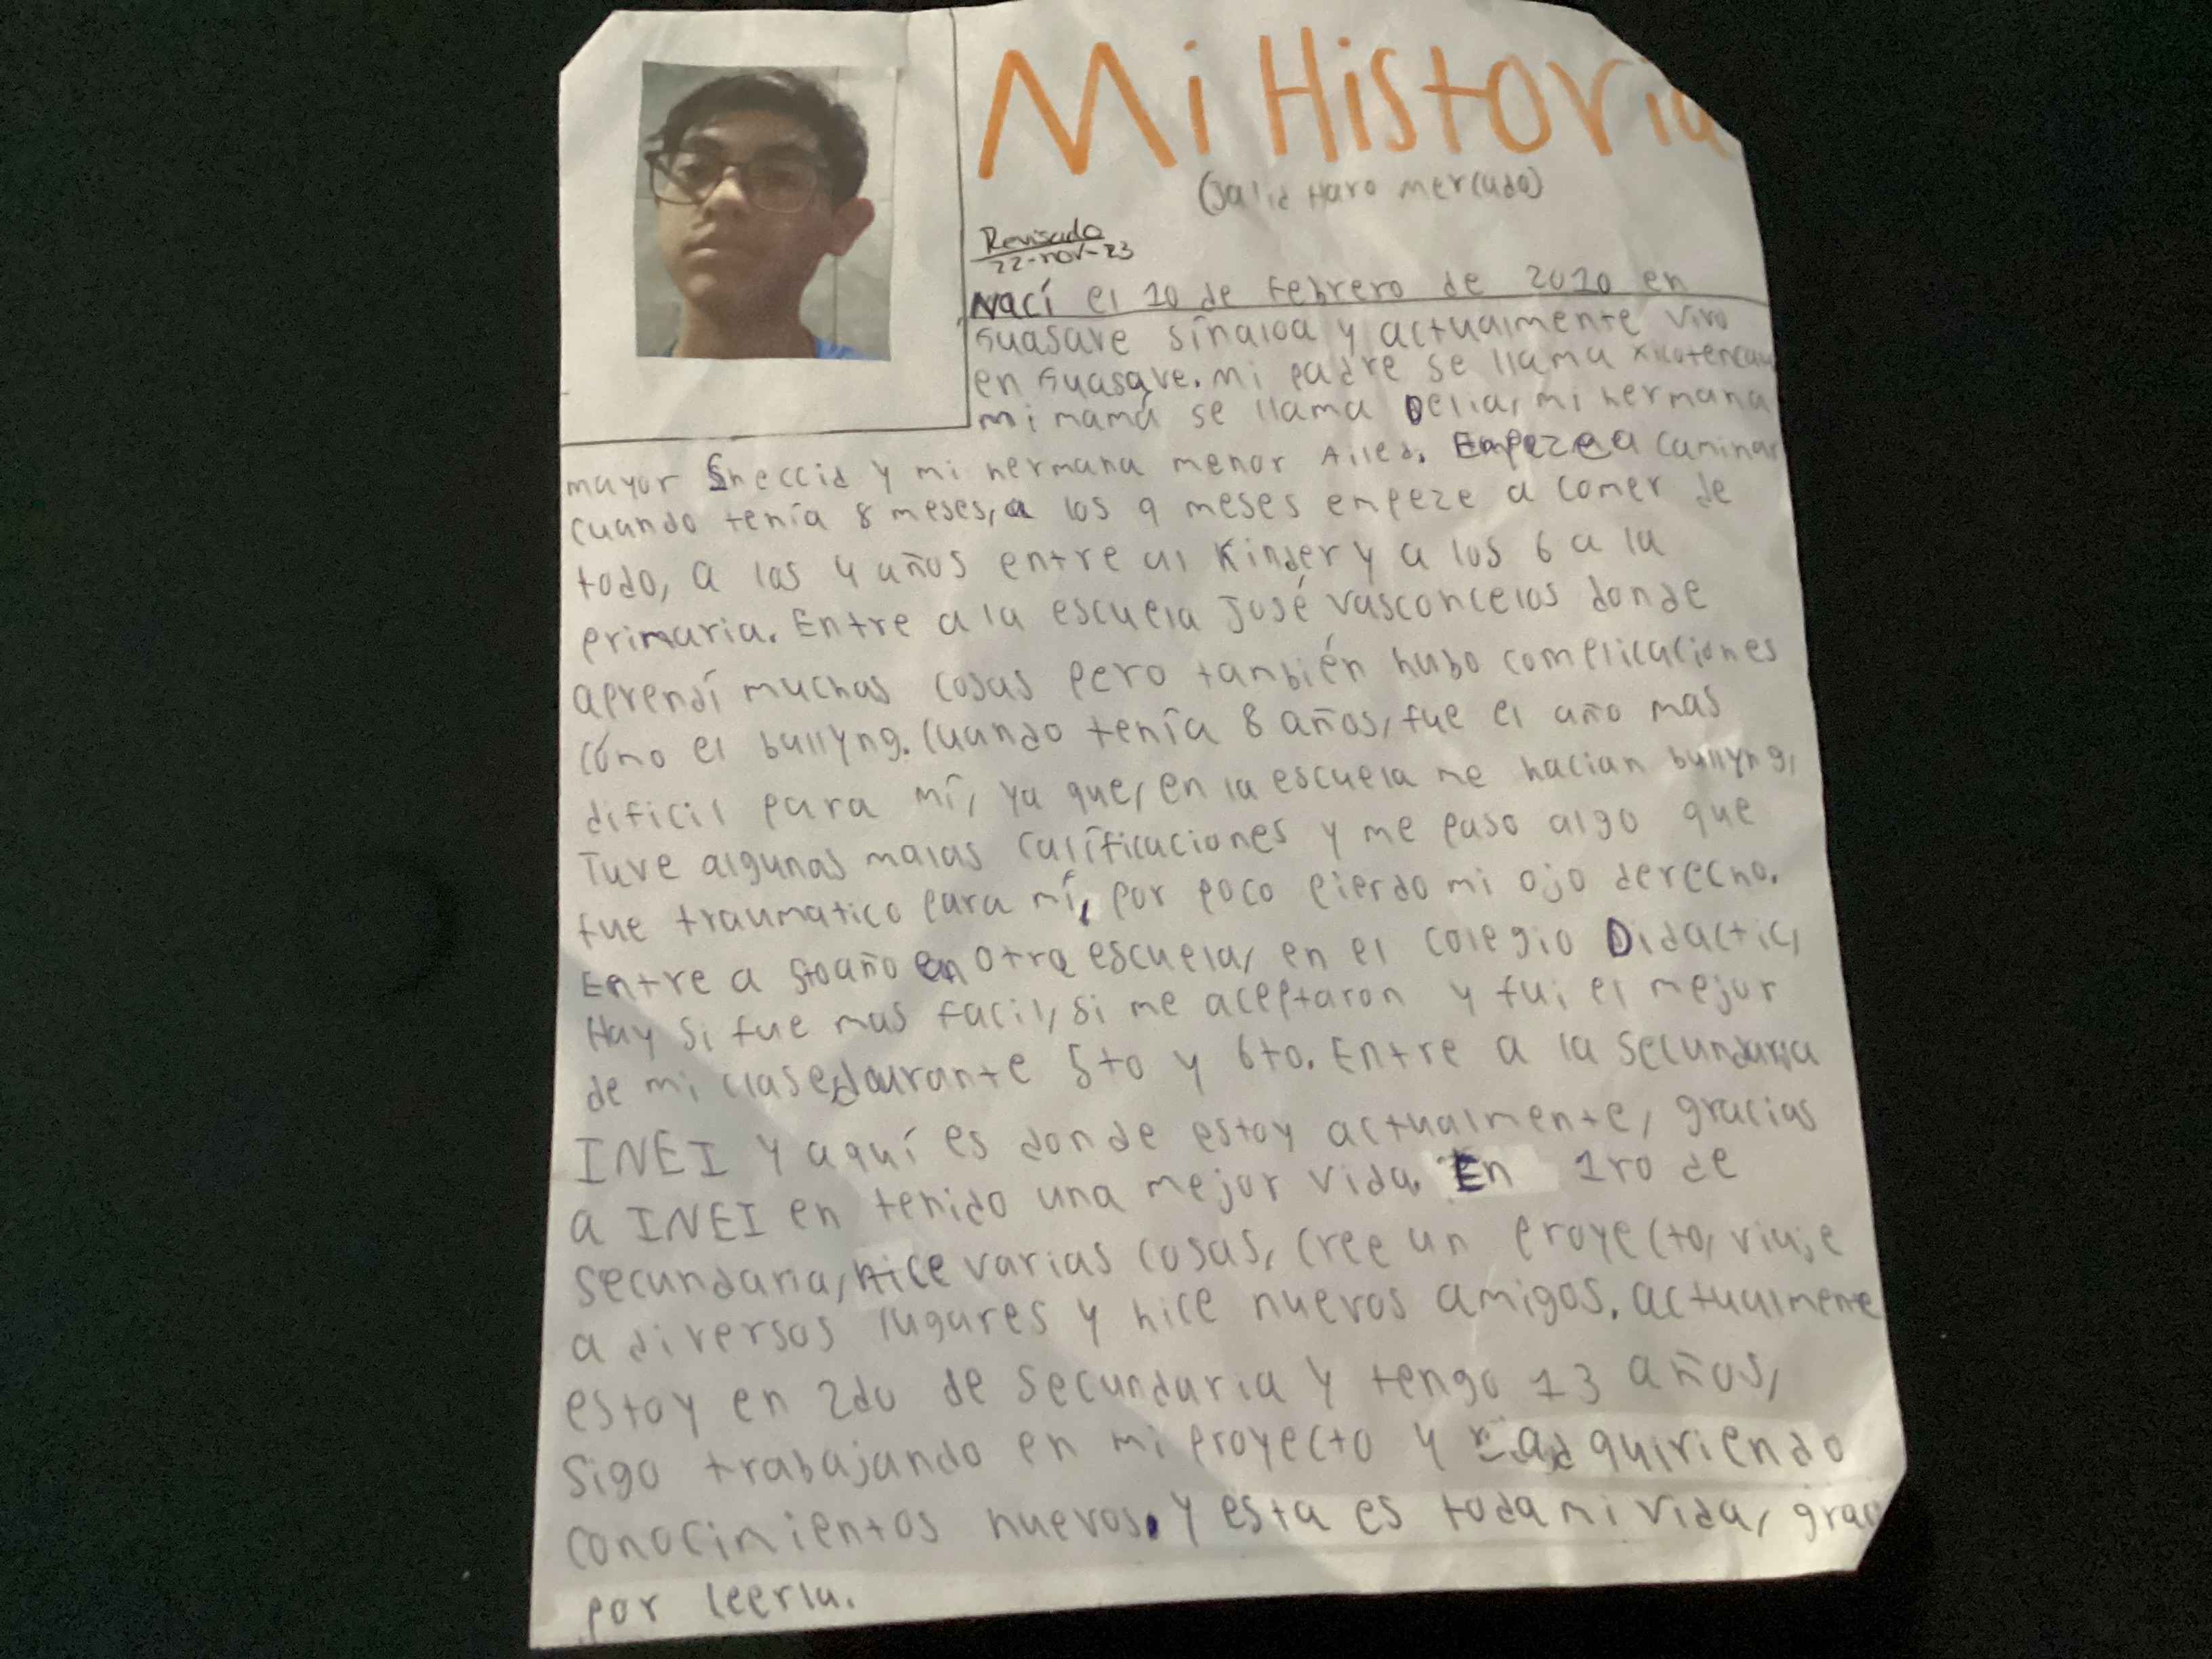 Mi Historia
(Jalid Haro Mercado)
Revisado
22-nov-23
Nací el 10 de Febrero de 2010 en
Guasave Sinaloa y actualmente vivo
en Guasave. Mi padre se llama
mi mamá se llama Delia, mi hermana
mayor Sheccid y mi hermana menor Ailed. Empeze a caminar
cuando tenía 8 meses, a los 9 meses empeze a comer de
todo, a los 4 años entre al Kinder y a los 6 a la
primaria. Entre a la escuela José Vasconcelos donde
aprendí muchas cosas pero también hubo complicaciones
cómo el bullyng. Cuando tenía 8 años, fue el año mas
dificil para mí, ya que, en la escuela me hacian bullyng,
Tuve algunas malas calificaciones y me paso algo que
fue traumatico para mí, por poco pierdo mi ojo derecho.
Entre a 5to año en otra escuela, en el colegio Didactic,
Hay si fue mas facil, si me aceptaron y fui el mejor
de mi clase, durante 5to y 6to. Entre a la secundaria
INEI y aquí es donde estoy actualmente, gracias
a INEI en tenido una mejor vida. En 1ro de
secundaria, hice varias cosas, cree un proyecto, viaje
a diversos lugares y hice nuevos amigos. actualmente
estoy en 2do de secundaria y tengo 13 años,
sigo trabajando en mi proyecto y adquiriendo
conocimientos nuevos. Y esta es toda mi vida, grac
por leerla.